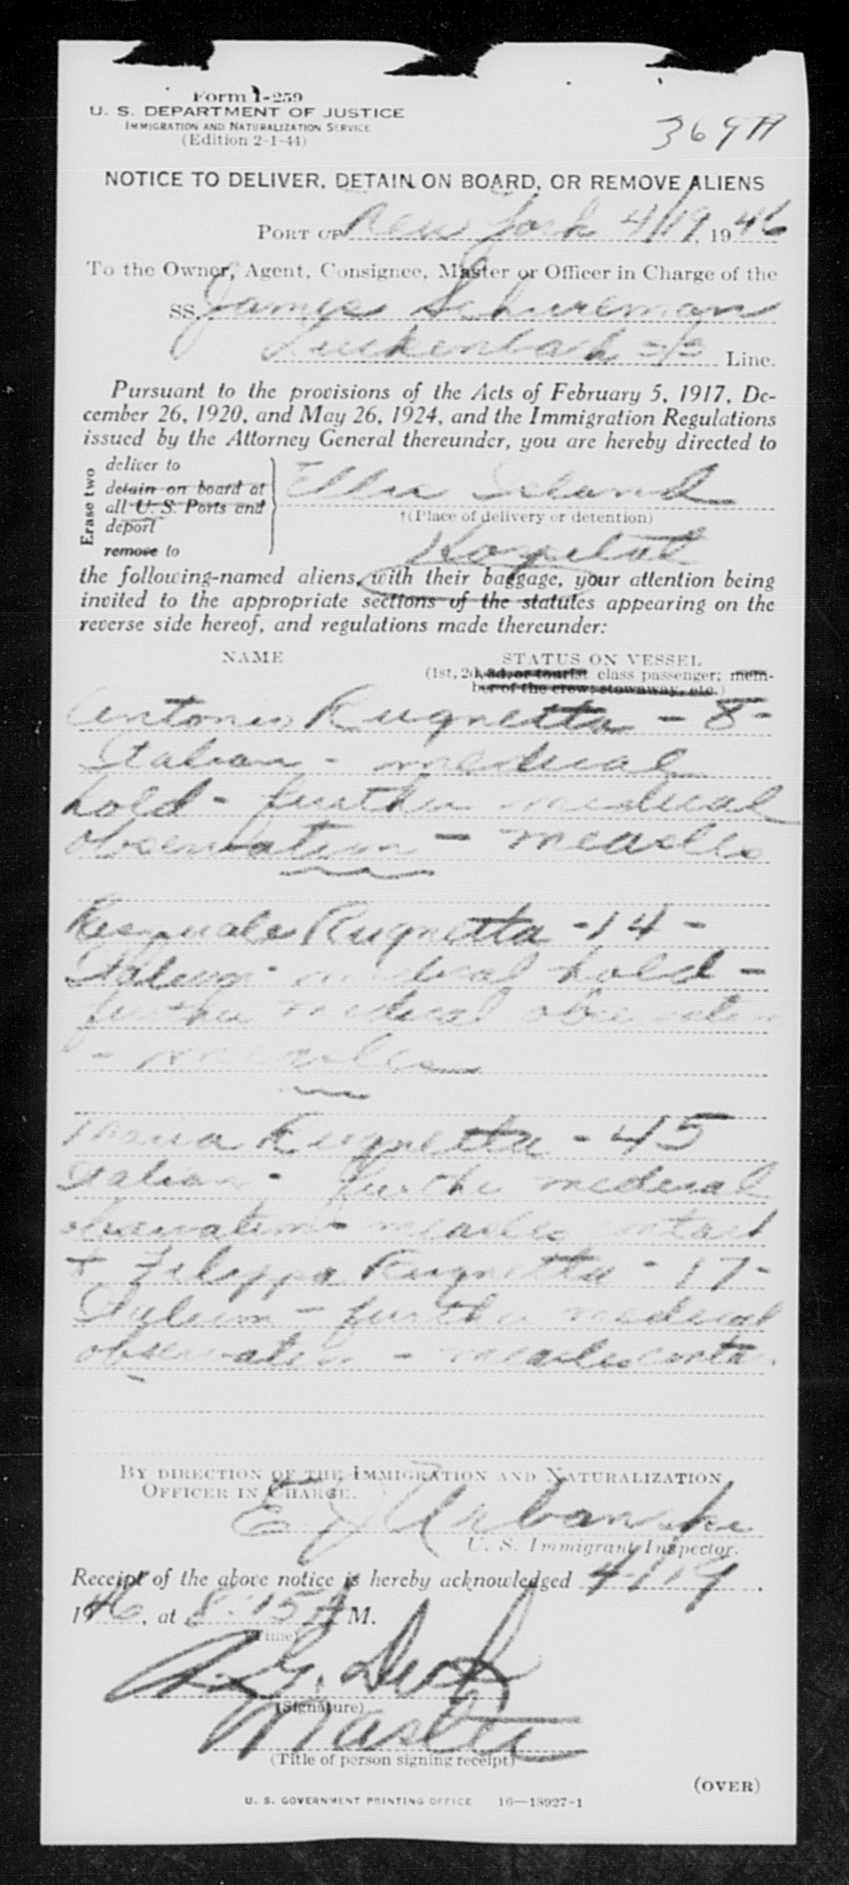 Form I-259
U. S. DEPARTMENT OF JUSTICE
IMMIGRATION AND NATURALIZATION SERVICE
(Edition 2-1-44)
NOTICE TO DELIVER, DETAIN ON BOARD, OR REMOVE ALIENS
PORT OF New York 4/19, 1946
To the Owner, Agent, Consignee, Master or Officer in Charge of the
SS. James Schureman
Luckenbach S/S Line.
Pursuant to the provisions of the Acts of February 5, 1917, De-
cember 26, 1920, and May 26, 1924, and the Immigration Regulations
issued by the Attorney General thereunder, you are hereby directed to
Erase two
deliver to
detain on board at
all U. S. Ports and
deport
remove to
Ellis Island
†(Place of delivery or detention)
Hospital
the following-named aliens, with their baggage, your attention being
invited to the appropriate sections of the statutes appearing on the
reverse side hereof, and regulations made thereunder:
NAME
STATUS ON VESSEL
(1st, 2d, 3d, or tourist class passenger; mem-
ber of the crew; stowaway, etc.)
Antonio Rugnetta - 8 -
Italian - medical
hold - further medical
observation - measles
Pasquale Rugnetta - 14 -
Italian - medical hold -
further medical observation
- measles
Maria Rugnetta - 45
Italian - further medical
observation - measles contact
+ Filippa Rugnetta - 17 -
Italian - further medical
observation - measles contact
BY DIRECTION OF THE IMMIGRATION AND NATURALIZATION
OFFICER IN CHARGE.
E J Urbanski
U. S. Immigrant Inspector.
Receipt of the above notice is hereby acknowledged 4/19,
1946, at 8:15 A M.
(Time)
A. G.
(Signature)
Master
(Title of person signing receipt)
(OVER)
U. S. GOVERNMENT PRINTING OFFICE 16—18927-1